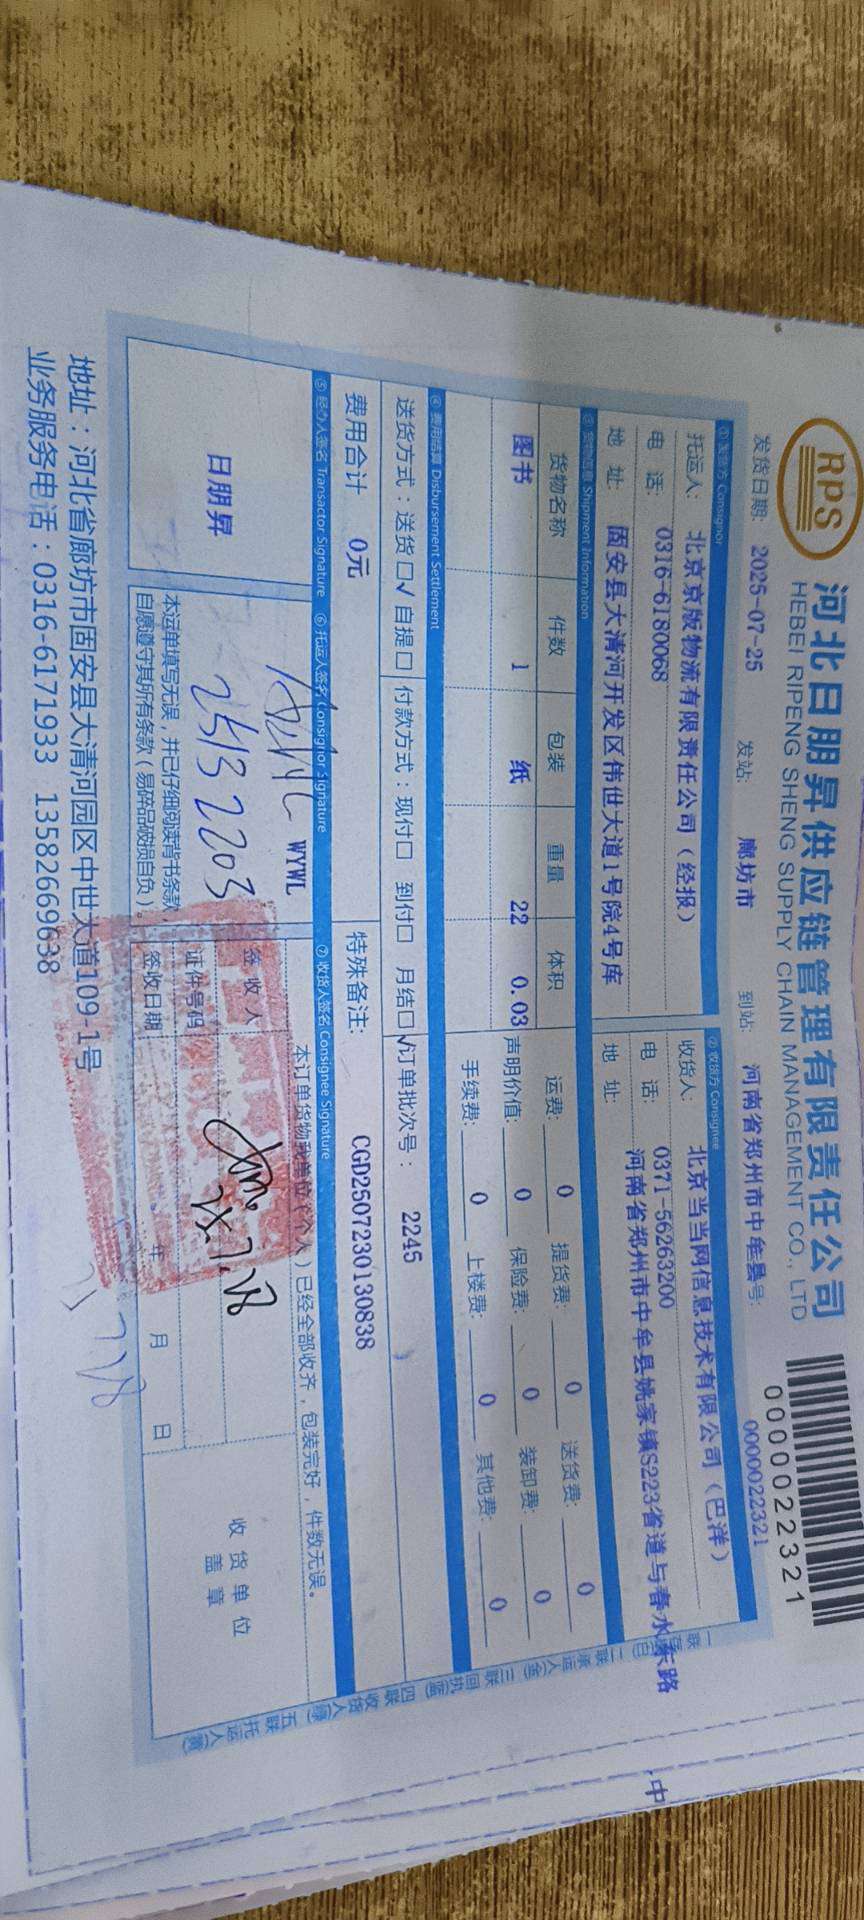 RPS
河北日朋昇供应链管理有限责任公司
HEBEI RIPENG SHENG SUPPLY CHAIN MANAGEMENT CO., LTD
0000022321
发货日期: 2025-07-25 发站: 廊坊市 到站: 河南省郑州市中牟县号: 0000022321
①发货方 Consignor ②收货方 Consignee
托运人: 北京京版物流有限责任公司（经报） 收货人: 北京当当网信息技术有限公司（巴洋）
电 话: 0316-6180068 电 话: 0371-56263200
地 址: 固安县大清河开发区伟世大道1号院4号库 地 址: 河南省郑州市中牟县姚家镇S223省道与春水东路
中
③货物信息 Shipment Information
货物名称 件数 包装 重量 体积 运费: 0 提货费: 0 送货费: 0
图书 1 纸 22 0.03 声明价值: 0 保险费: 0 装卸费: 0
手续费: 0 上楼费: 0 其他费: 0
④费用结算 Disbursement Settlement
送货方式：送货□√ 自提□ 付款方式：现付□ 到付□ 月结□√ 订单批次号： 2245
费用合计 0元 特殊备注: CGD25072301308​38
⑤经办人签名 Transactor Signature ⑥托运人签名 Consignor Signature ⑦收货人签名 Consignee Signature
日朋昇
WYWL
2513 2203
本运单填写无误，并已仔细阅读背书条款，
自愿遵守其所有条款（易碎品破损自负）
本订单货物我单位（个人）已经全部收齐，包装完好，件数无误。
签 收 人
证件号码
签收日期 年 月 日
25.7.28
收货单位
盖章
一联 二联承运人(金) 三联回执(蓝) 四联收货人(绿) 五联托运人(黄)
地址：河北省廊坊市固安县大清河园区中世大道109-1号
业务服务电话：0316-6171933 13582669638